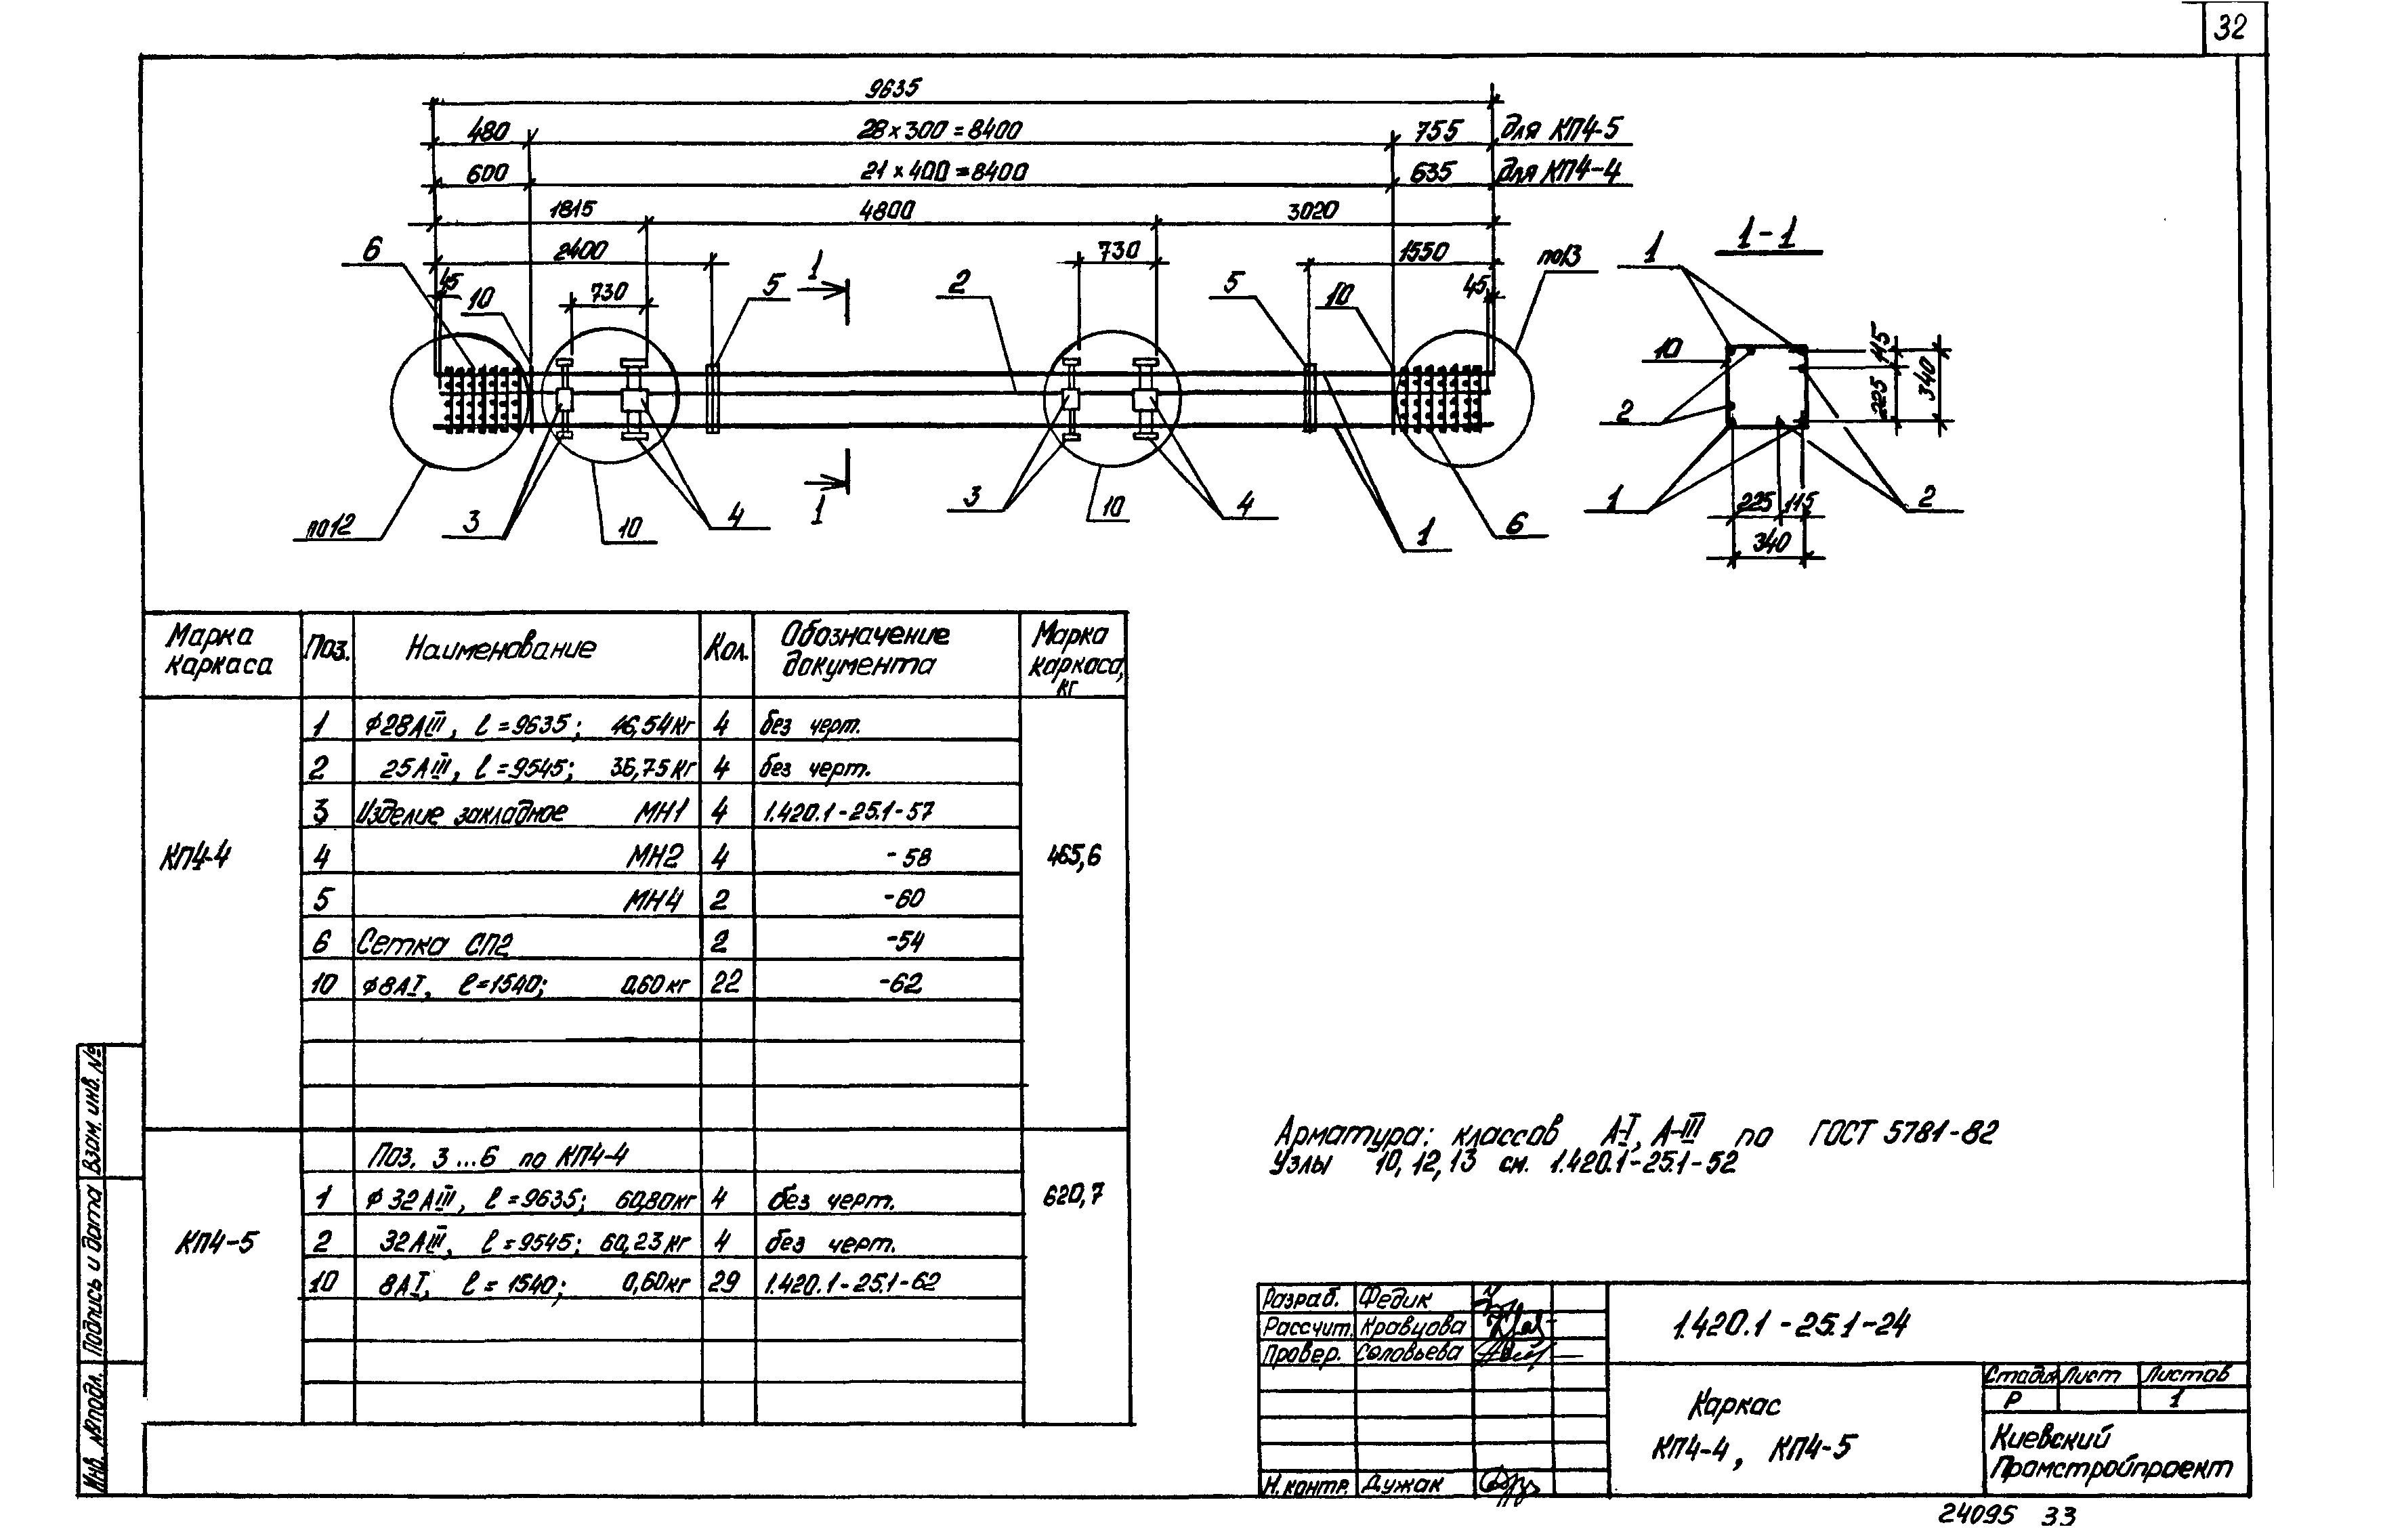 32
9635
480 28×300=8400 755 для КП4-5
600 21×400=8400 635 для КП4-4
1815 4800 3020
2400 730 1550
6 45 10 730 1 5 2 5 10 45 по13
по12 3 10 4 1 3 10 4 1 6
1-1
1 10 2 1 2
115 225 340
225 115
340
Марка каркаса Поз. Наименование Кол. Обозначение документа Марка каркаса, кг
КП4-4 465,6
1 ϕ28АIII, ℓ=9635; 46,54кг 4 без черт.
2 25АIII, ℓ=9545; 36,75кг 4 без черт.
3 Изделие закладное МН1 4 1.420.1-25.1-57
4 МН2 4 -58
5 МН4 2 -60
6 Сетка СП2 2 -54
10 ϕ8АI, ℓ=1540; 0,60кг 22 -62
КП4-5 620,7
Поз. 3...6 по КП4-4
1 ϕ32АIII, ℓ=9635; 60,80кг 4 без черт.
2 32АIII, ℓ=9545; 60,23кг 4 без черт.
10 8АI, ℓ=1540; 0,60кг 29 1.420.1-25.1-62
Арматура: классов А-I, А-III по ГОСТ 5781-82
Узлы 10, 12, 13 см. 1.420.1-25.1-52
Взам. инв. №
Подпись и дата
Инв. №подл.
Разраб. Федик
Рассчит. Кравцова
Провер. Соловьева
Н.контр. Дужак
1.420.1-25.1-24
Каркас
КП4-4, КП4-5
Стадия Лист Листов
Р 1
Киевский
Промстройпроект
24095 33